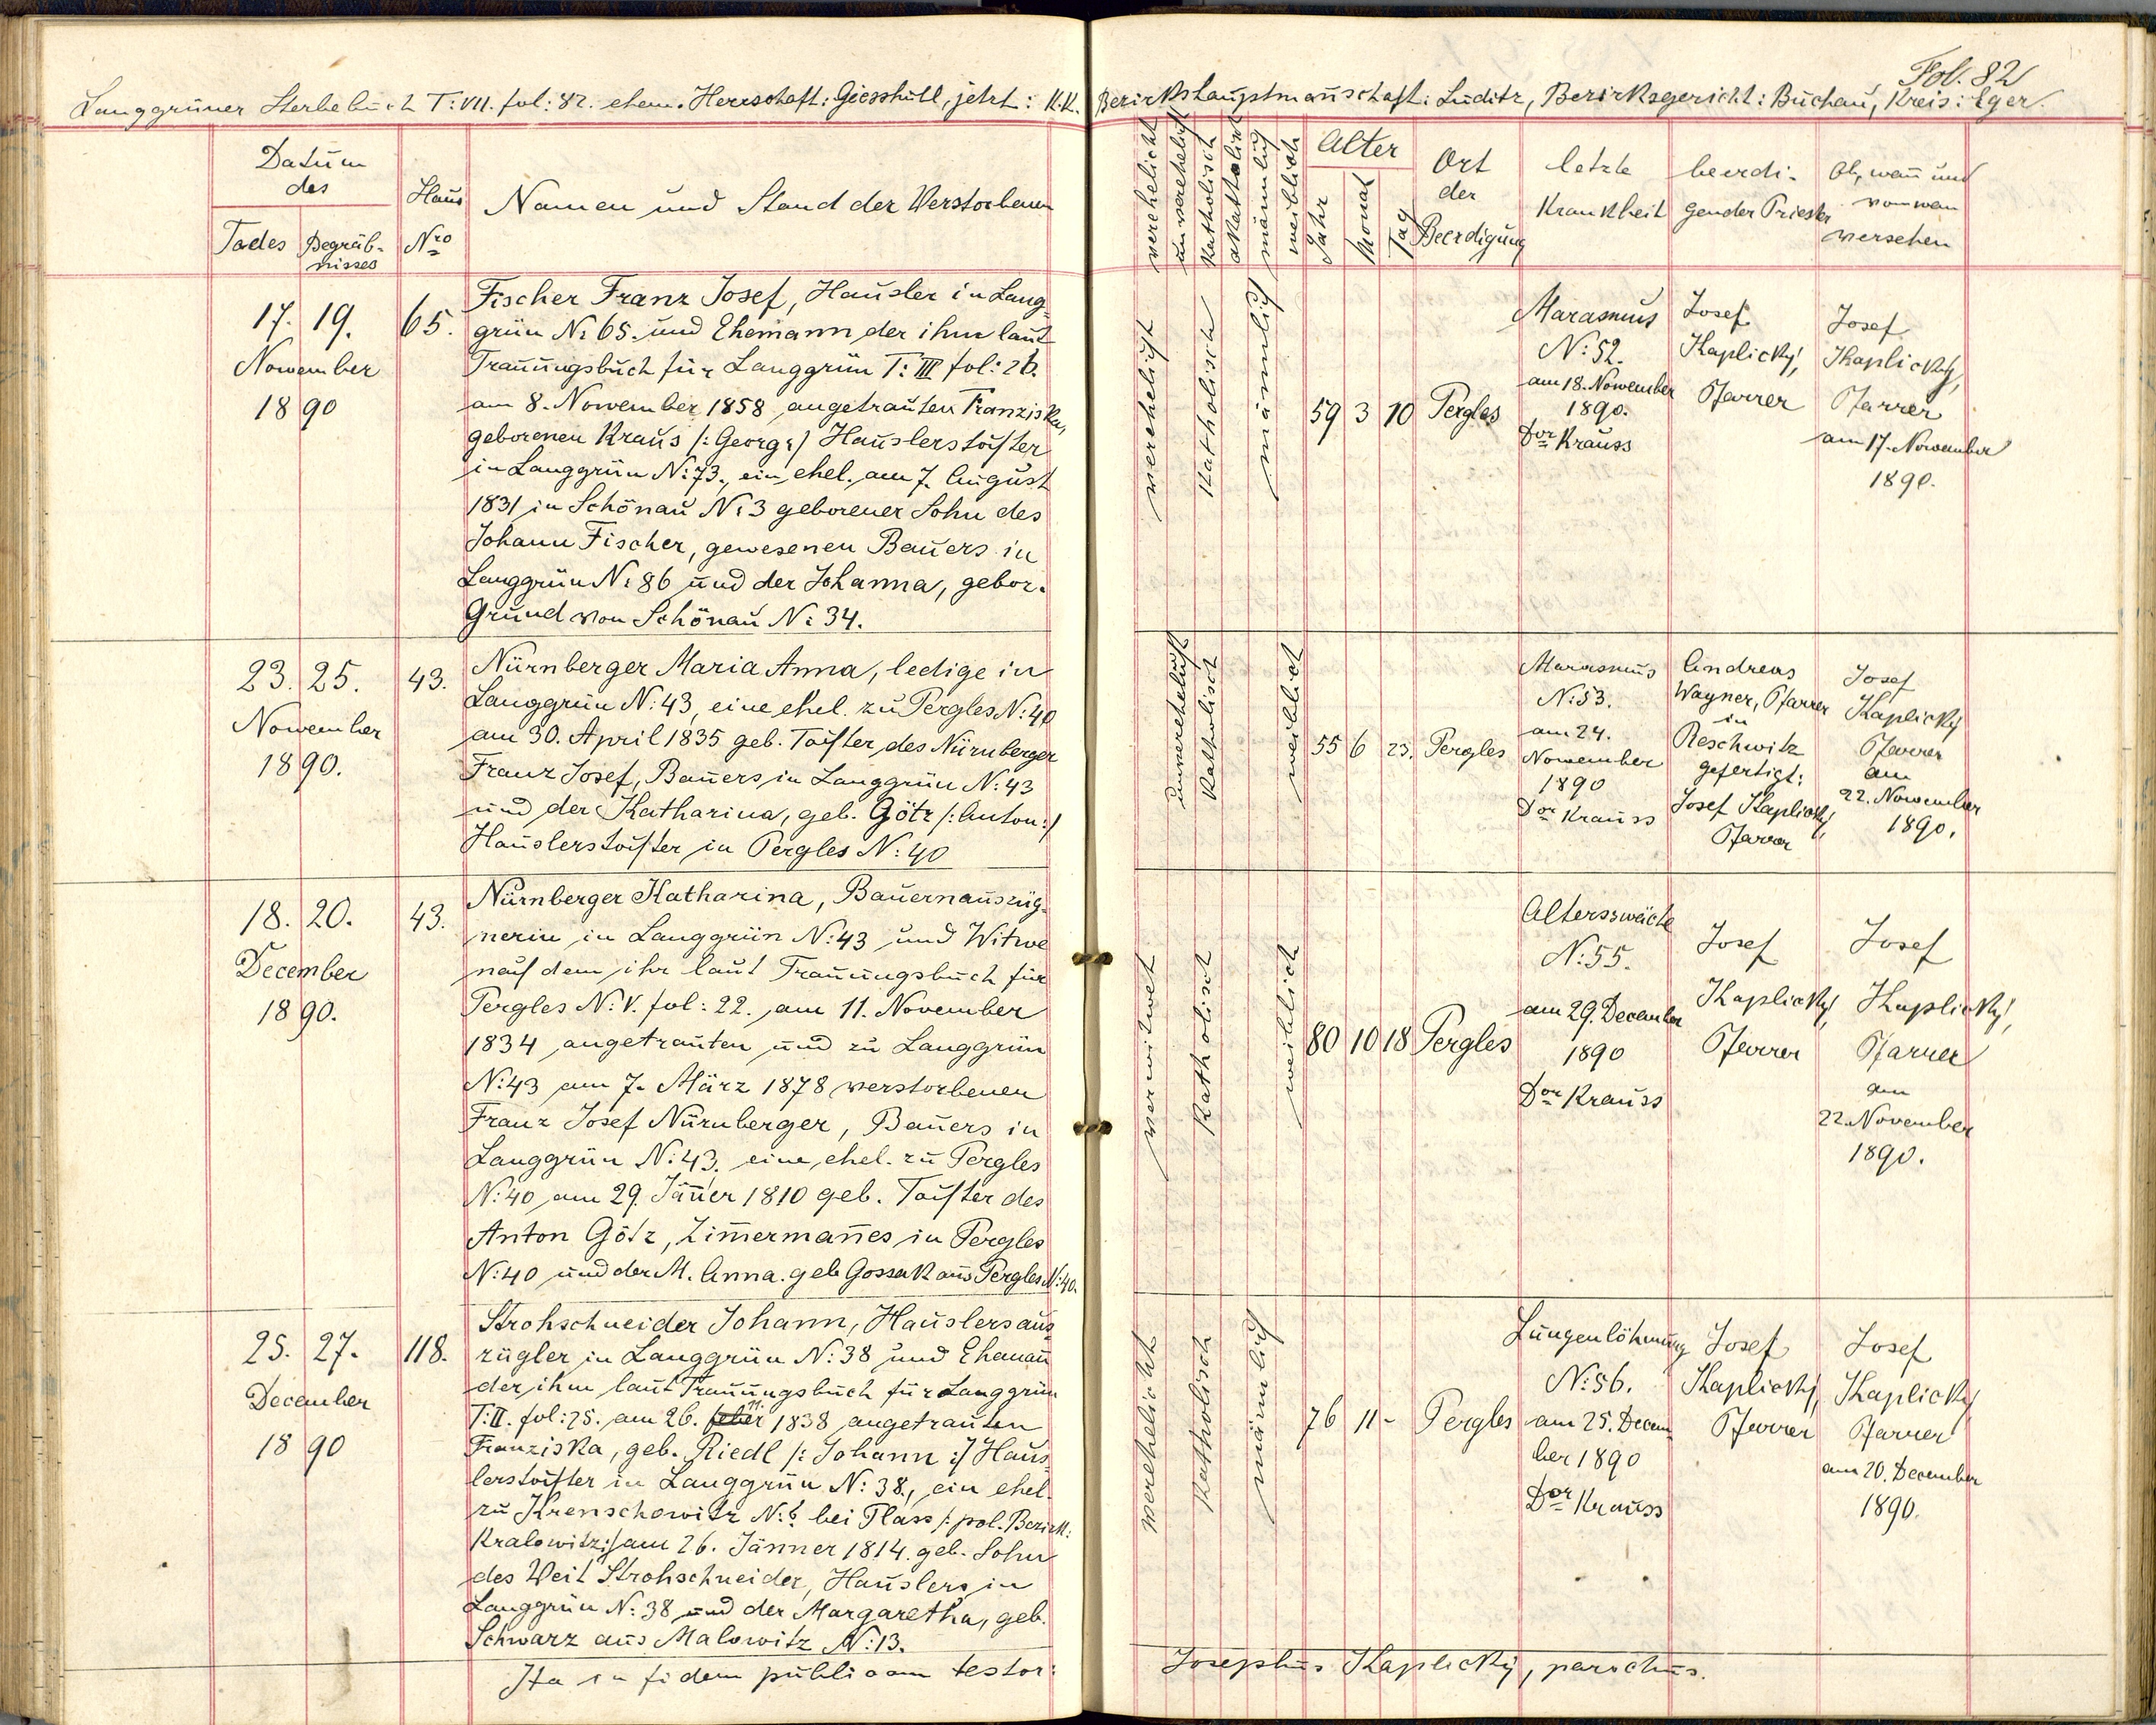 Fol. 82
Langgrüner Sterbebuch T: VII. fol: 82. ehem. Herrschaft: Giesshübl, jetzt: K.K. Bezirkshauptmanschaft: Luditz, Bezirksgericht: Buchau, Kreis: Eger.
Datum
des
Todes
Begräb-
nisses
Haus
Nro
Namen und Stand der Verstorbenen
verehelicht
unverehelicht
katholisch
akatholisch
männlich
weiblich
Alter
Jahr
Monat
Tag
Ort
der
Beerdigung
letzte
Krankheit
beerdi-
gender Priester
Ob, wañ und
von wem
versehen
17. 19.
November
1890
65.
Fischer Franz Josef, Häusler in Lang-
grün N: 65. und Ehemann der ihm laut
Trauungsbuch für Langgrün T: III fol: 26.
am 8. November 1858 angetrauten Franziska,
geborenen Kraus /: Georg :/ Häuslerstochter
in Langgrün N: 73., ein ehel. am 7. August
1831 in Schönau N: 3 geborener Sohn des
Johann Fischer, gewesenen Bauers in
Langgrün N: 86 und der Johanna, gebor.
Grund von Schönau N: 34.
verehelicht
katholisch
männlich
59 3 10
Pergles
Marasmus
N: 52.
am 18. November
1890.
Dor Krauss
Josef
Kaplický,
Pfarrer
Josef
Kaplický,
Pfarrer
am 17. November
1890.
23. 25.
November
1890.
43.
Nürnberger Maria Anna, ledige in
Langgrün N: 43, eine ehel. zu Pergles N: 40
am 30. April 1835 geb. Tochter des Nürnberger
Franz Josef, Bauers in Langgrün N: 43
und der Katharina, geb. Götz /: Anton :/
Häuslerstochter in Pergles N: 40
unverehelicht
katholisch
weiblich
55 6 23.
Pergles
Marasmus
N: 53.
am 24.
November
1890
Dor Krauss
Andreas
Wagner, Pfarrer
in
Reschwitz
gefertigt:
Josef Kaplický,
Pfarrer
Josef
Kaplický
Pfarrer
am
22. November
1890.
18. 20.
December
1890.
43.
Nürnberger Katharina, Bauernauszüg-
nerin in Langgrün N: 43 und Witwe
nach dem ihr laut Trauungsbuch für
Pergles N: V. fol: 22. am 11. November
1834 angetrauten und zu Langgrün
N: 43 am 7. März 1878 verstorbenen
Franz Josef Nürnberger, Bauers in
Langgrün N: 43. eine ehel. zu Pergles
N: 40 am 29. Jäñer 1810 geb. Tochter des
Anton Götz, Zim̄ermañes in Pergles
N: 40 und der M. Anna. geb Gossak aus Pergles N: 40.
verwitwet
katholisch
weiblich
80 10 18
Pergles
Altersswäche
N: 55.
am 29. December
1890
Dor Krauss
Josef
Kaplický,
Pfarrer
Josef
Kaplický,
Pfarrer
am
22. November
1890.
25. 27.
December
1890
118.
Strohschneider Johann, Häuslersaus-
zügler in Langgrün N: 38 und Ehemañ
der ihm laut Trauungsbuch für Langgrün
T: II. fol: 25. am 26. 11. 1838 angetrauten
Franziska, geb. Riedl /: Johann :/ Häus-
lerstochter in Langgrün N: 38., ein ehel.
zu Krenschowitz N: 6 bei Plass /: pol. Bezirk:
Kralowitz :/ am 26. Jänner 1814. geb. Sohn
des Veit Strohschneider, Häuslers in
Langgrün N: 38 und der Margaretha, geb.
Schwarz aus Malowitz N: 13.
verehelicht
katholisch
männlich
76 11 -
Pergles
Lungenlöhmung
N: 56.
am 25. Decem-
ber 1890
Dor Krauss
Josef
Kaplický,
Pfarrer
Josef
Kaplický
Pfarrer
am 20. December
1890.
Ita in fidem publicam testor:
Josephus Kaplický, parochus.